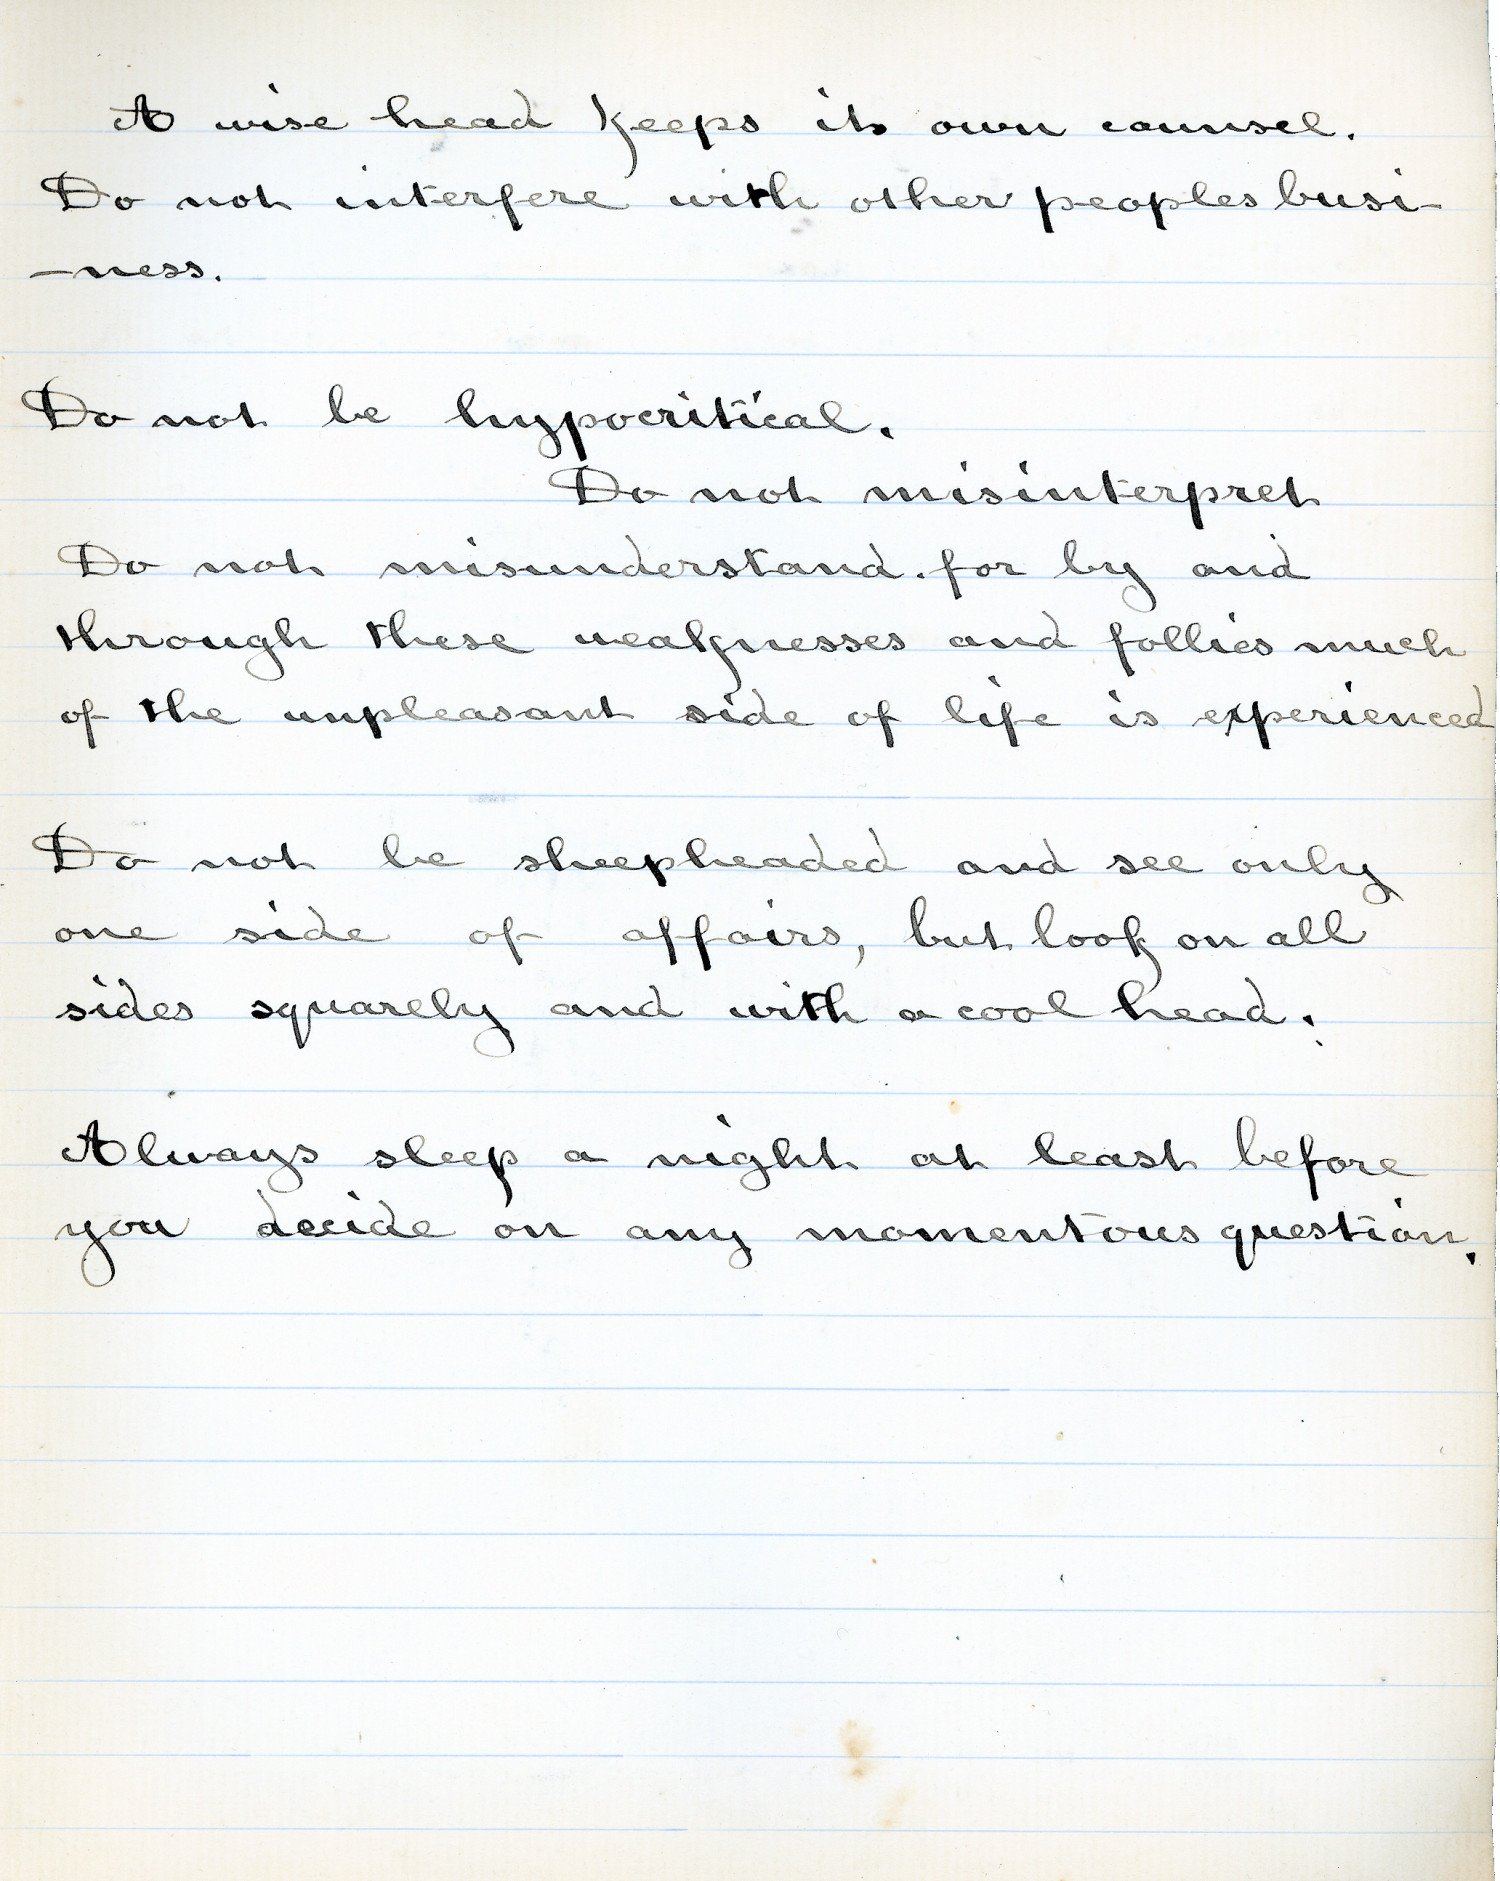 A wise head keeps its own counsel.
Do not interfere with other peoples busi-
-ness.
Do not be hypocritical.
Do not misinterpret
Do not misunderstand. for by and
through these weaknesses and follies much
of the unpleasant side of life is experienced
Do not be sheepheaded and see only
one side of affairs, but look on all
sides squarely and with a cool head.
Always sleep a night at least before
you decide on any momentous question.